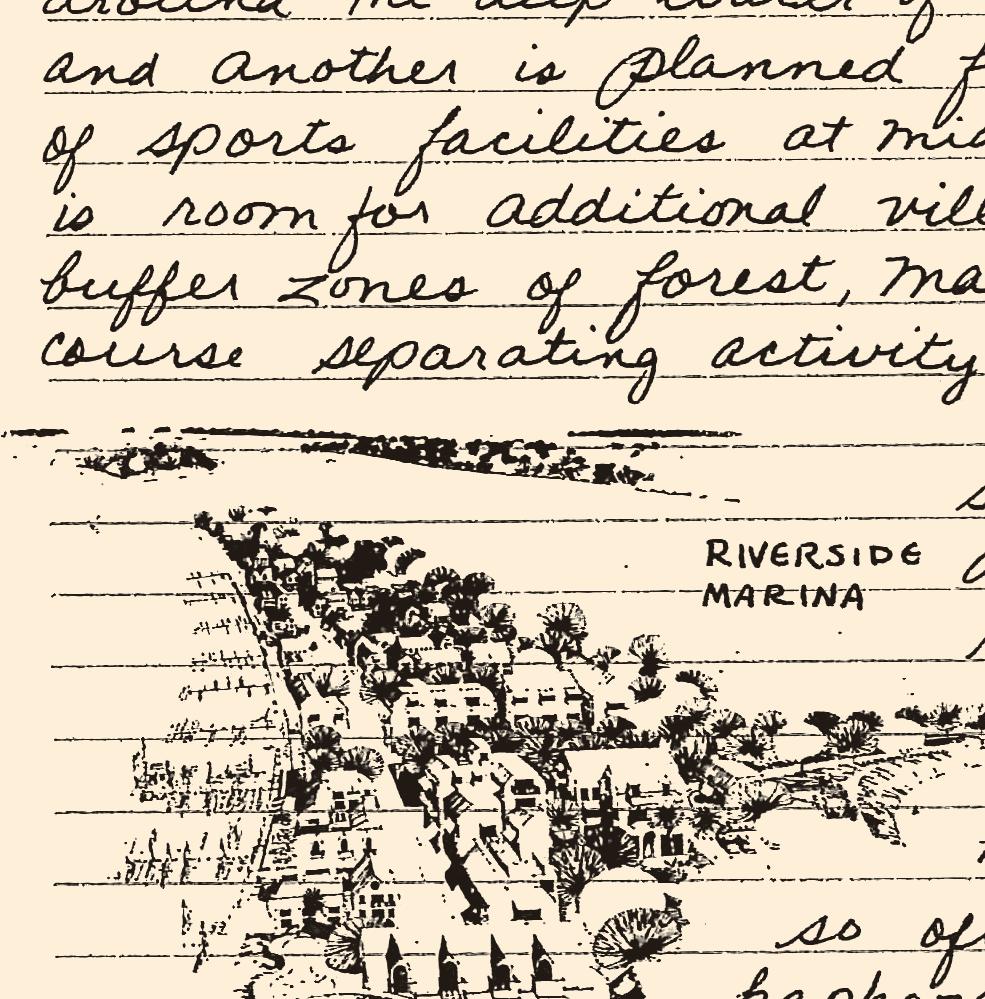 around the deep
and another is planned
of sports facilities at
is room for additional
buffer zones of forest,
course separating activity
RIVERSIDE
MARINA
so